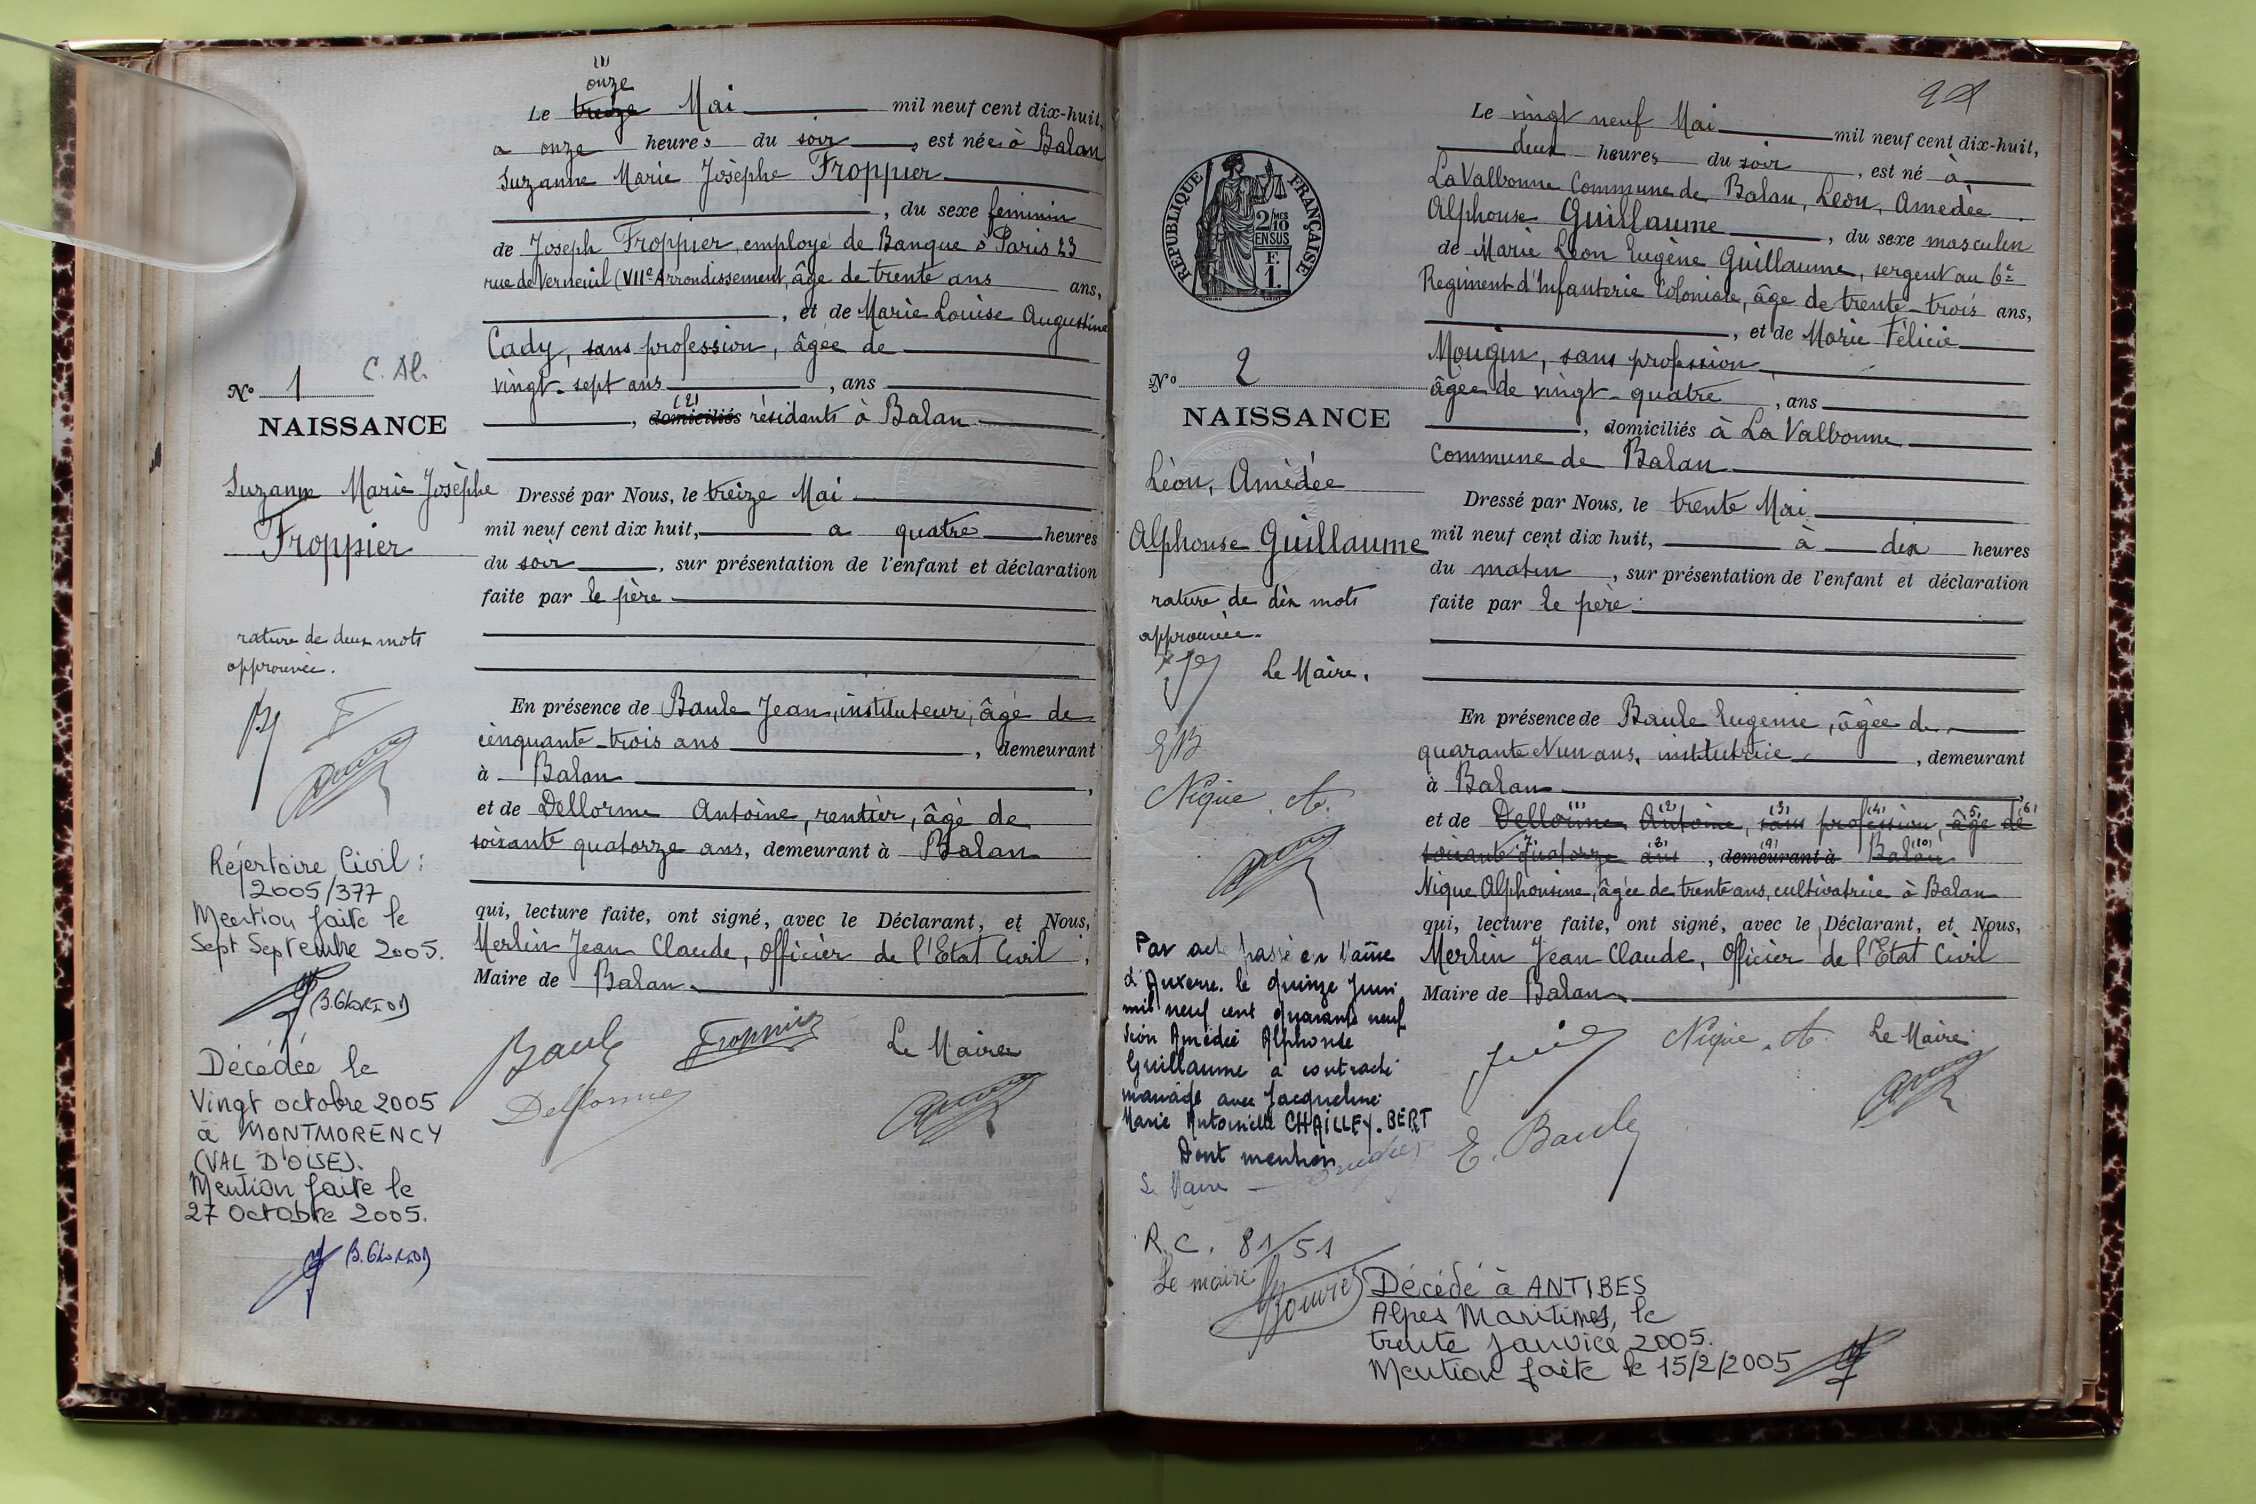 (1)
onze
Le treize Mai mil neuf cent dix-huit,
a onze heures du soir, est née à Balan
Suzanne Marie Josèphe Froppier
, du sexe feminin
de Joseph Froppier, employé de Banque à Paris 23
rue de Verneuil (VIIe Arrondissement, âgé de trente ans ans,
, et de Marie Louise Augustine
Cady, sans profession, âgée de
vingt-sept ans, ans
(2)
, domiciliés résidants à Balan
Dressé par Nous, le treize Mai
mil neuf cent dix huit, a quatre heures
du soir, sur présentation de l'enfant et déclaration
faite par le père
En présence de Baule Jean, instituteur, âgé de
cinquante-trois ans, demeurant
à Balan,
et de Dellorme Antoine, rentier, âgé de
soixante quatorze ans, demeurant à Balan
qui, lecture faite, ont signé, avec le Déclarant, et Nous,
Merlin Jean Claude, Officier de l'Etat Civil,
Maire de Balan.
Baule Froppier Le Maire
Dellorme
C. Al.
No 1
NAISSANCE
Suzanne Marie Josèphe
Froppier
rature de deux mots
approuvée.
Répertoire Civil :
2005/377
Mention faite le
Sept Septembre 2005.
Décédée le
Vingt octobre 2005
à MONTMORENCY
(VAL D'OISE).
Mention faite le
27 Octobre 2005.
RÉPUBLIQUE FRANÇAISE
2/10
EN SUS
F.
1.
No 2
NAISSANCE
Léon, Amédée
Alphonse Guillaume
rature de dix mots
approuvée.
Le Maire,
EB
Nique A.
Par acte passé en Mairie
d'Auxerre le quinze Juin
mil neuf cent quarante neuf
Léon Amédée Alphonse
Guillaume a contracté
mariage avec Jacqueline
Marie Antoinette CHAILLEY-BERT
Dont mention
Le Maire
R.C. 81/51
Le maire
Le vingt neuf Mai mil neuf cent dix-huit,
deux heures du soir, est né à
La Valbonne Commune de Balan, Léon, Amédée
Alphonse Guillaume, du sexe masculin
de Marie Léon Eugène Guillaume, sergent au 6e
Régiment d'Infanterie Coloniale, âgé de trente-trois ans,
, et de Marie Félicie
Mougin, sans profession
âgée de vingt-quatre, ans
, domiciliés à La Valbonne
Commune de Balan
Dressé par Nous, le trente Mai
mil neuf cent dix huit, à dix heures
du matin, sur présentation de l'enfant et déclaration
faite par le père
En présence de Baule Eugenie, âgée de
quarante et un ans, institutrice, demeurant
à Balan,
(1) (2) (3) (4) (5) (6)
et de Dellorme Antoine, sans profession, âgé de
(7) (8) (9) (10)
soixante quatorze ans, demeurant à Balan
Nique Alphonsine, âgée de trente ans, cultivatrice à Balan
qui, lecture faite, ont signé, avec le Déclarant, et Nous,
Merlin Jean Claude, Officier de l'Etat Civil
Maire de Balan
Nique A. Le Maire
E. Baule
Décédé à ANTIBES
Alpes Maritimes, le
trente Janvier 2005.
Mention faite le 15/2/2005